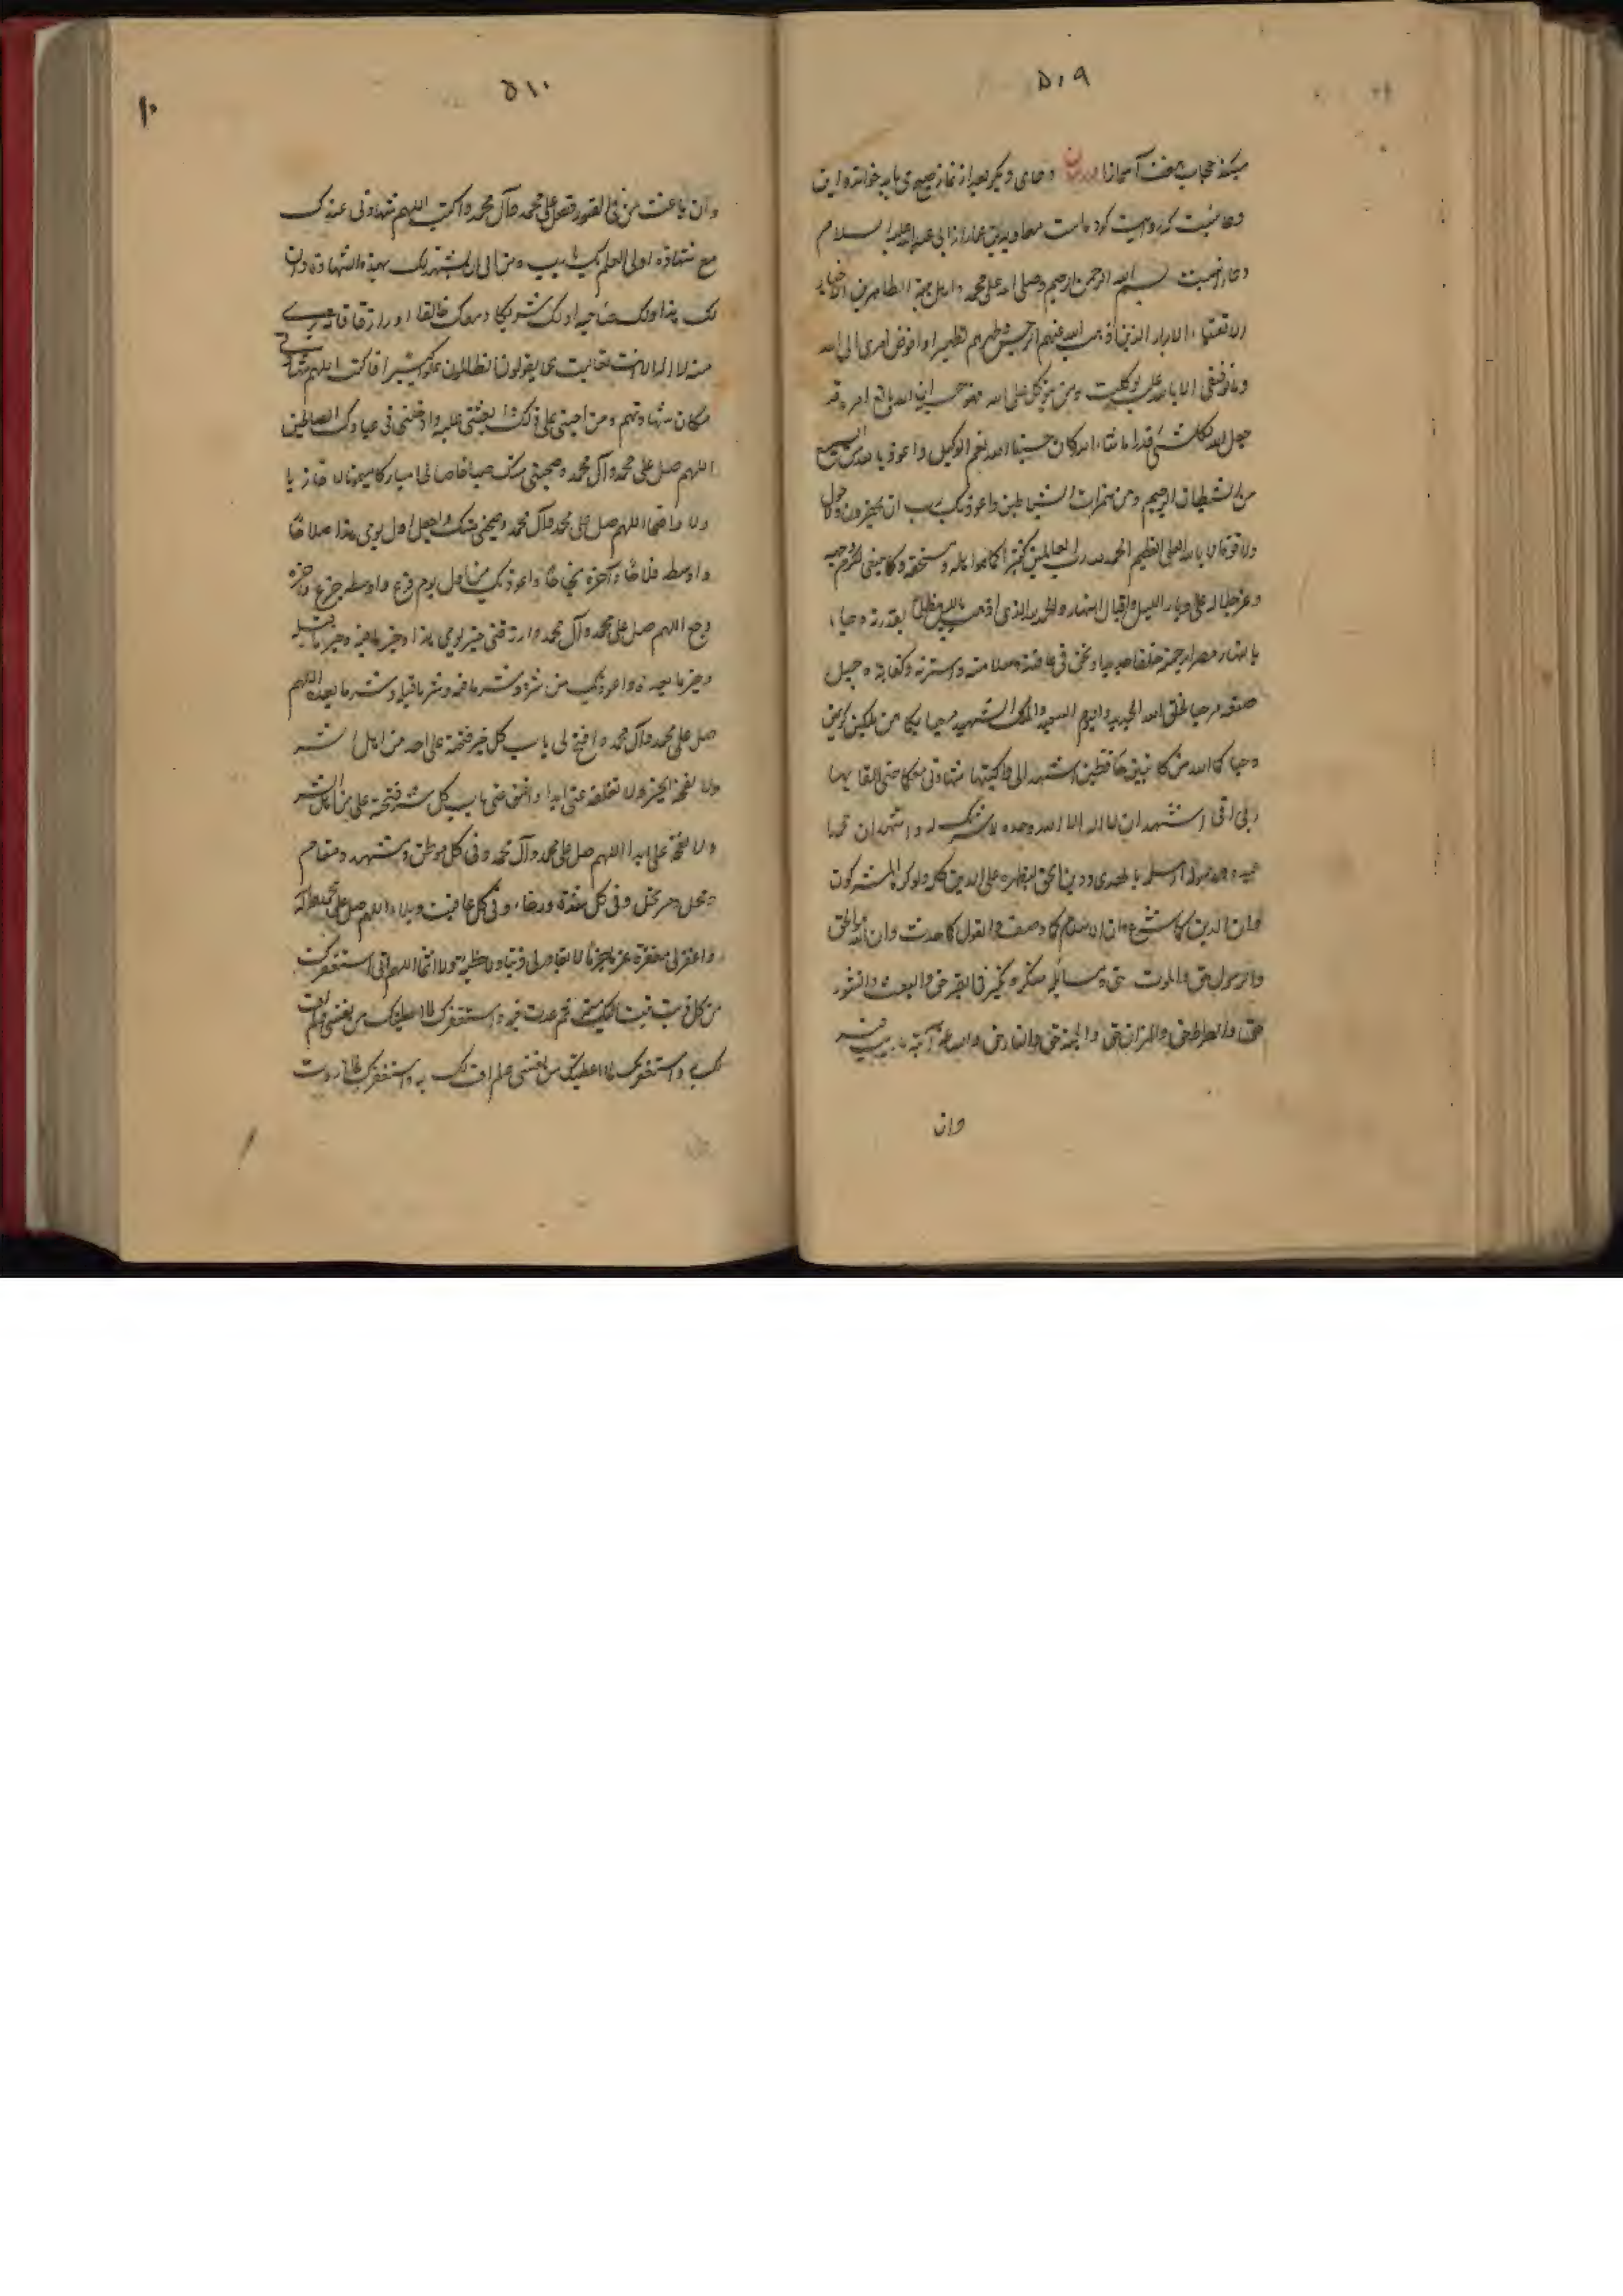 ۵۰۹
میکند حجاب هفت آسمانرا دعای دیگر بعد از نماز صبح می باید خواند و این
دعائیست که روایت کرده است معاویة بن عمار از ابی عبد الله علیه السلام
دعا اینست بسم الله الرحمن الرحیم وصلی الله علی محمد واهل بیته الطاهرین الاخیار
الاتقیاء الابرار الذین اذهب الله عنهم الرجس وطهرهم تطهیرا وافوض امری الی الله
وما توفیقی الا بالله علیه توکلت ومن یتوکل علی الله فهو حسبه ان الله بالغ امره قد
جعل الله لکل شئ قدرا ما شاء الله کان حسبنا الله نعم الوکیل واعوذ بالله السمیع
من الشیطان الرجیم ومن همزات الشیاطین واعوذ بک رب ان یحضرون ولا حول
ولا قوة الا بالله العلی العظیم الحمد لله رب العالمین کثیرا کما هو اهله ومستحقه وکما ینبغی لکرم وجهه
وعز جلاله علی ادبار اللیل واقبال النهار والحمد لله الذی اذهب باللیل مظلما بقدرته وجاء
بالنهار مبصرا برحمته خلقا جدیدا ونحن فی عافیته وسلامته وستره وکفایته وجمیل
صنعه مرحبا بخلق الله الجدید والیوم العتید والملک الشهید مرحبا بکما من ملکین کریمین
وحیاکما الله من کاتبین حافظین اشهدکما فاکتبا شهادتی معکما حتی القی بها
ربی انی اشهد ان لا اله الا الله وحده لا شریک له واشهد ان محمدا
عبده ورسوله ارسله بالهدی ودین الحق لیظهره علی الدین کله ولو کره المشرکون
وان الدین کما شرع وان الاسلام کما وصف والقول کما حدث وان الله الحق
والرسول حق والموت حق ومسائلة منکر ونکیر فی القبر حق والبعث والنشور
حق والصراط حق والمیزان حق والجنة حق والنار حق والساعة آتیة لا ریب فیه
وان
۵۱۰
وان باعث من فی القبور فصل علی محمد وآل محمد واکتب اللهم شهادتی عندک
مع شهادة اولی العلم بک یا رب ومن ابی ان یشهد لک بهذه الشهادة وان
لک ندا ولک صاحبة او لک شریکا او معک خالقا او رازقا فانا بری
منه لا اله الا انت تعالیت عما یقول الظالمون علوا کبیرا فاکتب اللهم شهادتی
مکان شهادتهم ومن احینی علی ذلک وابعثنی علیه وادخلنی فی عبادک الصالحین
اللهم صل علی محمد وآل محمد وصبحنی منک صباحا صالحا مبارکا میمونا لا خازیا
ولا فاضحا اللهم صل علی محمد وآل محمد واجعل اول یومی هذا صلاحا
واوسطه فلاحا وآخره نجاحا واعوذ بک من یوم اوله فزع واوسطه جزع وآخره
وجع اللهم صل علی محمد وآل محمد وارزقنی خیر یومی هذا وخیر ما فیه وخیر ما قبله
وخیر ما بعده واعوذ بک من شره وشر ما فیه وشر ما قبله وشر ما بعده اللهم
صل علی محمد وآل محمد وافتح لی باب کل خیر فتحته علی احد من اهل الشر
ولا تغلقه عنی ابدا واغلق عنی باب کل شر فتحته علی من اهل الشر
ولا تفتحه علی ابدا اللهم صل علی محمد وآل محمد وفی کل موطن ومشهد ومقام
ومحل ومرتحل وفی کل شدة ورخاء وفی کل عافیة وبلاء اللهم صل علی محمد وآله
واغفر لی مغفرة عزما جزما لا تغادر لی ذنبا ولا خطیئة ولا اثما اللهم انی استغفرک
من کل ذنب تبت الیک منه ثم عدت فیه واستغفرک لما اعطیتک من نفسی ثم لم اف
لک به واستغفرک لما اعطیتک من نفسی ولم اف لک به واستغفرک لما اردت